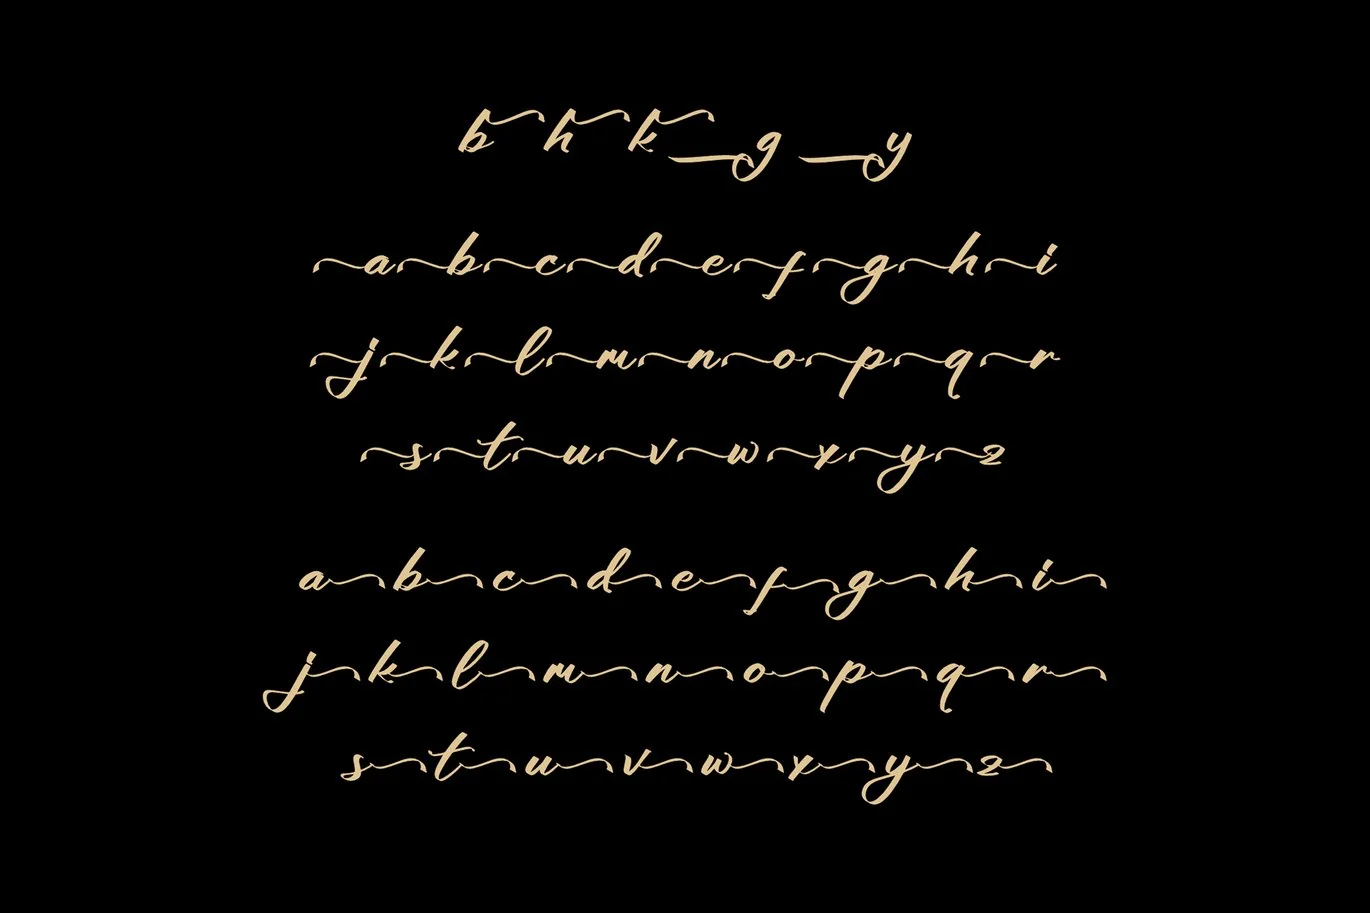 b h k g y
a b c d e f g h i
j k l m n o p q r
s t u v w x y z
a b c d e f g h i
j k l m n o p q r
s t u v w x y z